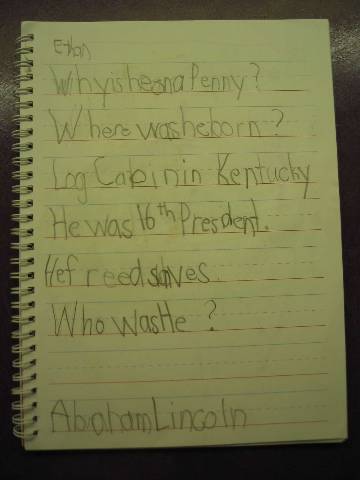 Ethan
Why is he on a Penny?
Where was he born?
Log Cabin in Kentucky
He was 16th President.
He freed slaves
Who was He?
Abraham Lincoln